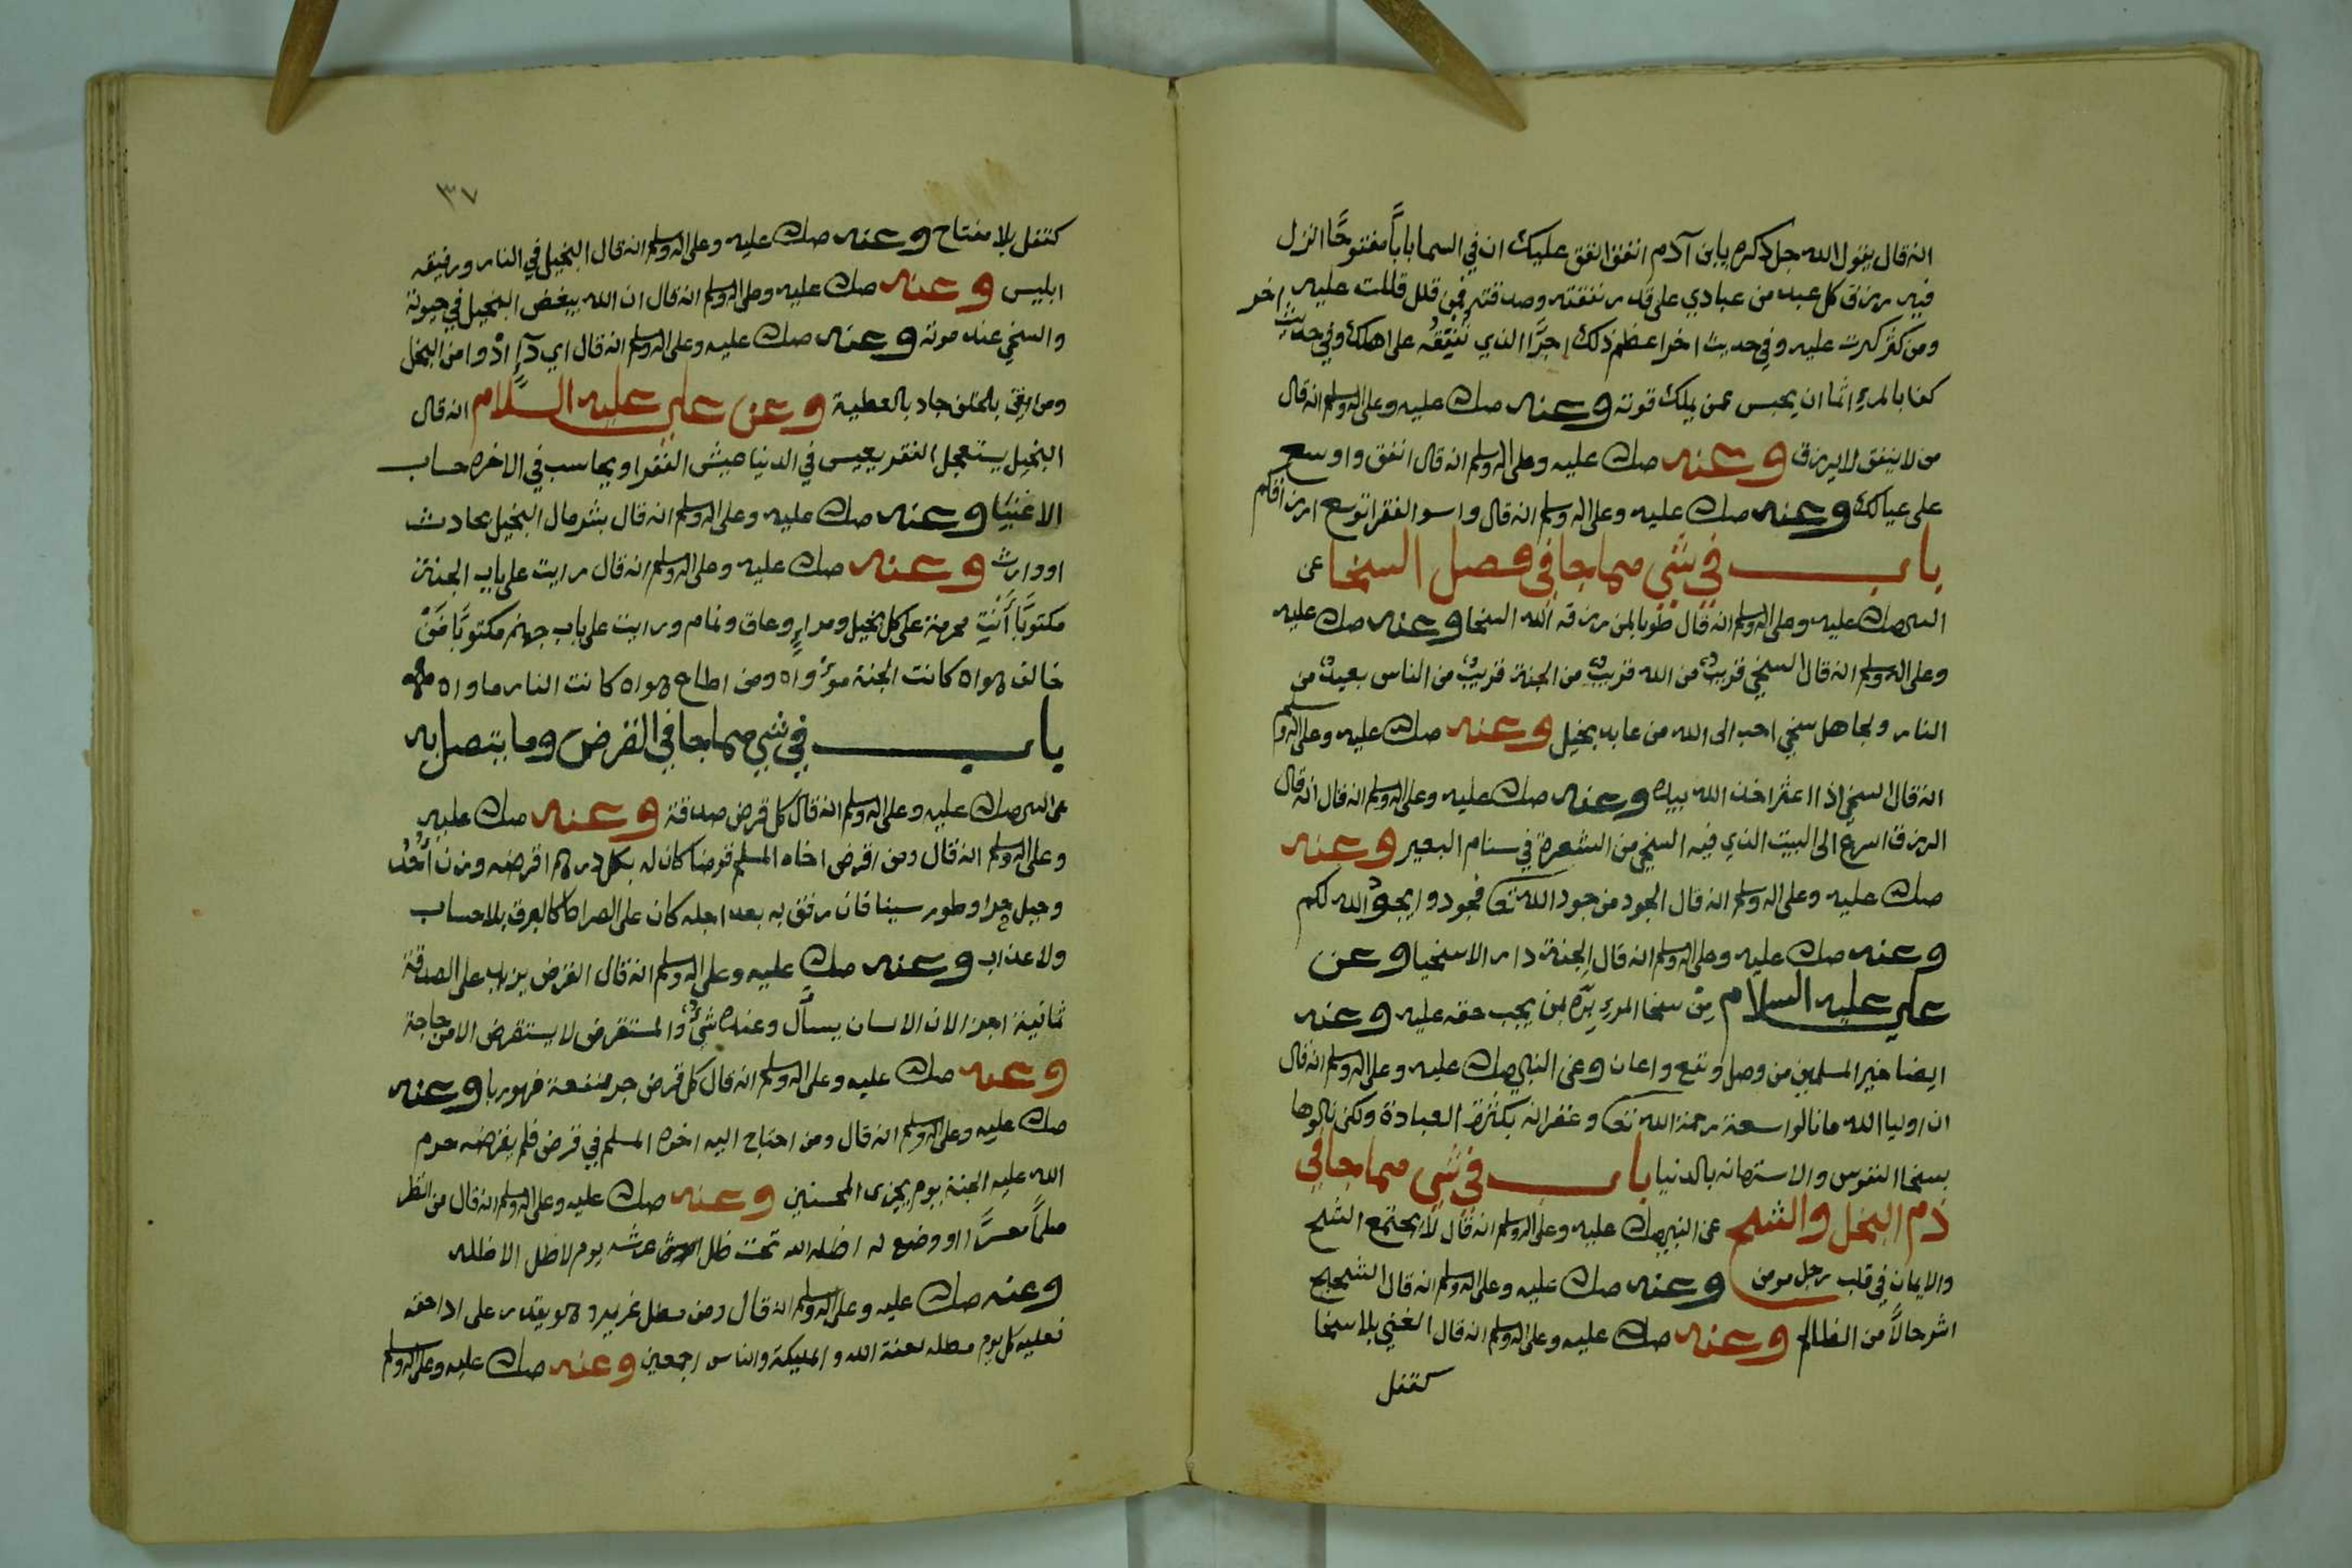 انه قال يقول الله جل ذكره يابن آدم انفق انفق عليك ان في السما باباً مفتوحًا انزل
فيه رزق كل عبد من عبادي على قدر نفقته وصدقته فمن قلل قللت عليه
ومن كثر كثرت عليه وفي حديث اخر اعظم ذلك اجرًا الذي تنفقه على اهلك وفي حديث اخر
كفا بالمرءِ اثما ان يحبس عمن يملك قوته وعنه صلى الله عليه وعلى اله وسلم انه قال
من لا ينفق لا يرزق وعنه صلى الله عليه وعلى اله وسلم انه قال انفق واوسع
على عيالك وعنه صلى الله عليه وعلى اله وسلم انه قال واسو الفقرا توسع ارزاقكم
باب في شي مما جا في فصل السخا عن
النبي صلى الله عليه وعلى اله وسلم انه قال طوبا لمن رزقه الله السخا وعنه صلى الله عليه
وعلى اله وسلم انه قال السخي قريبٌ من الله قريبٌ من الجنة قريبٌ من الناس بعيدٌ من
النار ولجاهل سخي احب الى الله من عابد بخيل وعنه صلى الله عليه وعلى اله وسلم
انه قال السخي اذا اعثر اخذ الله بيده وعنه صلى الله عليه وعلى اله وسلم انه قال انه قال
الرزق اسرع الى البيت الذي فيه السخي من الشعرة في سنام البعير وعنه
صلى الله عليه وعلى اله وسلم انه قال الجود من جود الله تعا فجودوا يجودُ الله لكم
وعنه صلى الله عليه وعلى اله وسلم انه قال الجنة دار الاسخيا وعن
علي عليه السلام مِن سخا المرءِ برّه لمن يجب حقه عليه وعنه
ايضا خير المسلمين من وصل ونفع واعان وعن النبي صلى الله عليه وعلى اله وسلم انه قال
ان اوليا الله ما نالوا سعة رحمة الله تعا وغفرانه بكثرة العبادة ولكن نالوها
بسخا النفوس والاستهانه بالدنيا باب في شي مما جا في
ذم البخل والشح عن النبي صلى الله عليه وعلى اله وسلم انه قال لا يجتمع الشح
والايمان في قلب رجل مومن وعنه صلى الله عليه وعلى اله وسلم انه قال الشحيح
اشر حالاً من الظالم وعنه صلى الله عليه وعلى اله وسلم انه قال الغني بلا سخا
كقفل
٣٧
كقفل بلا مفتاح وعنه صلى الله عليه وعلى اله وسلم انه قال البخيل في النار ورفيقه
ابليس وعنه صلى الله عليه وعلى اله وسلم انه قال ان الله يبغض البخيل في حيوته
والسخي عند موته وعنه صلى الله عليه وعلى اله وسلم انه قال اي دآءٍ ادْوا من البخل
ومن ايقن بالخلف جاد بالعطية وعن علي عليه السَّلام انه قال
البخيل يستعجل الفقر يعيس في الدنيا عيش الفقرا ويحاسب في الاخره حساب
الاغنيا وعنه صلى الله عليه وعلى اله وسلم انه قال بشر مال البخيل بحادث
اووارث وعنه صلى الله عليه وعلى اله وسلم انه قال رايت على باب الجنة
مكتوبًا أَنْتِ محرمة على كل بخيل ومراءٍ وعاق ونمام ورايت على باب جهنم مكتوبًا مَنْ
خالف هواه كانت الجنة موْواه ومن اطاع هواه كانت النار ماواه
باب في شي مما جا في القرض وما يتصل به
عن النبي صلى الله عليه وعلى اله وسلم انه قال كل قرض صدقة وعنه صلى الله عليه
وعلى اله وسلم انه قال ومن اقرض اخاه المسلم قرضا كان له بكل درهم اقرضه وزن أُحُدٍ
وجبل حرا وطور سينا فان رفق به بعد اجله كان على الصراط كالبرق بلا حساب
ولا عذاب وعنه صلى الله عليه وعلى اله وسلم انه قال القرض يزيد على الصدقة
ثمانية اجزا لان الانسان يسأل وعنده شيءٌ والمستقرض لا يستقرض الا من حاجة
وعنه صلى الله عليه وعلى اله وسلم انه قال كل قرض جر منفعة فهو ربا وعنه
صلى الله عليه وعلى اله وسلم انه قال ومن احتاج اليه اخوه المسلم في قرض فلم يقرضه حرم
الله عليه الجنة يوم يجزى المحسنين وعنه صلى الله عليه وعلى اله وسلم انه قال من انظر
معسرًا او وضع له اظله الله تحت ظل عرشه يوم لا ظل الا ظله
وعنه صلى الله عليه وعلى اله وسلم انه قال ومن مطل غريمه وهو يقدر على ادا حقه
فعليه كل يوم مطله لعنة الله والمليكة والناس اجمعين وعنه صلى الله عليه وعلى اله وسلم